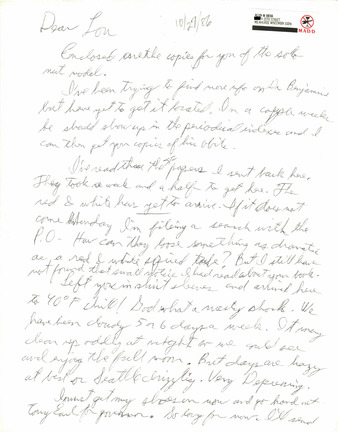 10/29/86
MADD
Dear Lou
Enclosed are the copies for you of the sole
nest model.
I've been trying to find more info on Dr Benjamin
but have yet to get it located. In a couple weeks
he should show up in the periodical indexes and I
can then get you copies of his obits.
I've read those papers I sent back here.
They took a week and a half to get here. The
red & white has yet to arrive. If it does not
come Monday I'm filing a search with the
P.O. - How can they lose something as dramatic
as a red & white striped tube? But I still have
not found that small notice I had read about your book.
Left you in shirt sleeves and arrived here
to 40°F chill! God what a nasty shock. We
have been cloudy 5 or 6 days a week. It may
clear up oddly at night so we could see
and enjoy the full moon. But days are hazy
at best or Seattle drizzly. Very Depressing.
I must get my shoes on now and go hand out
Tony Earl for governor. So long for now. I'll send